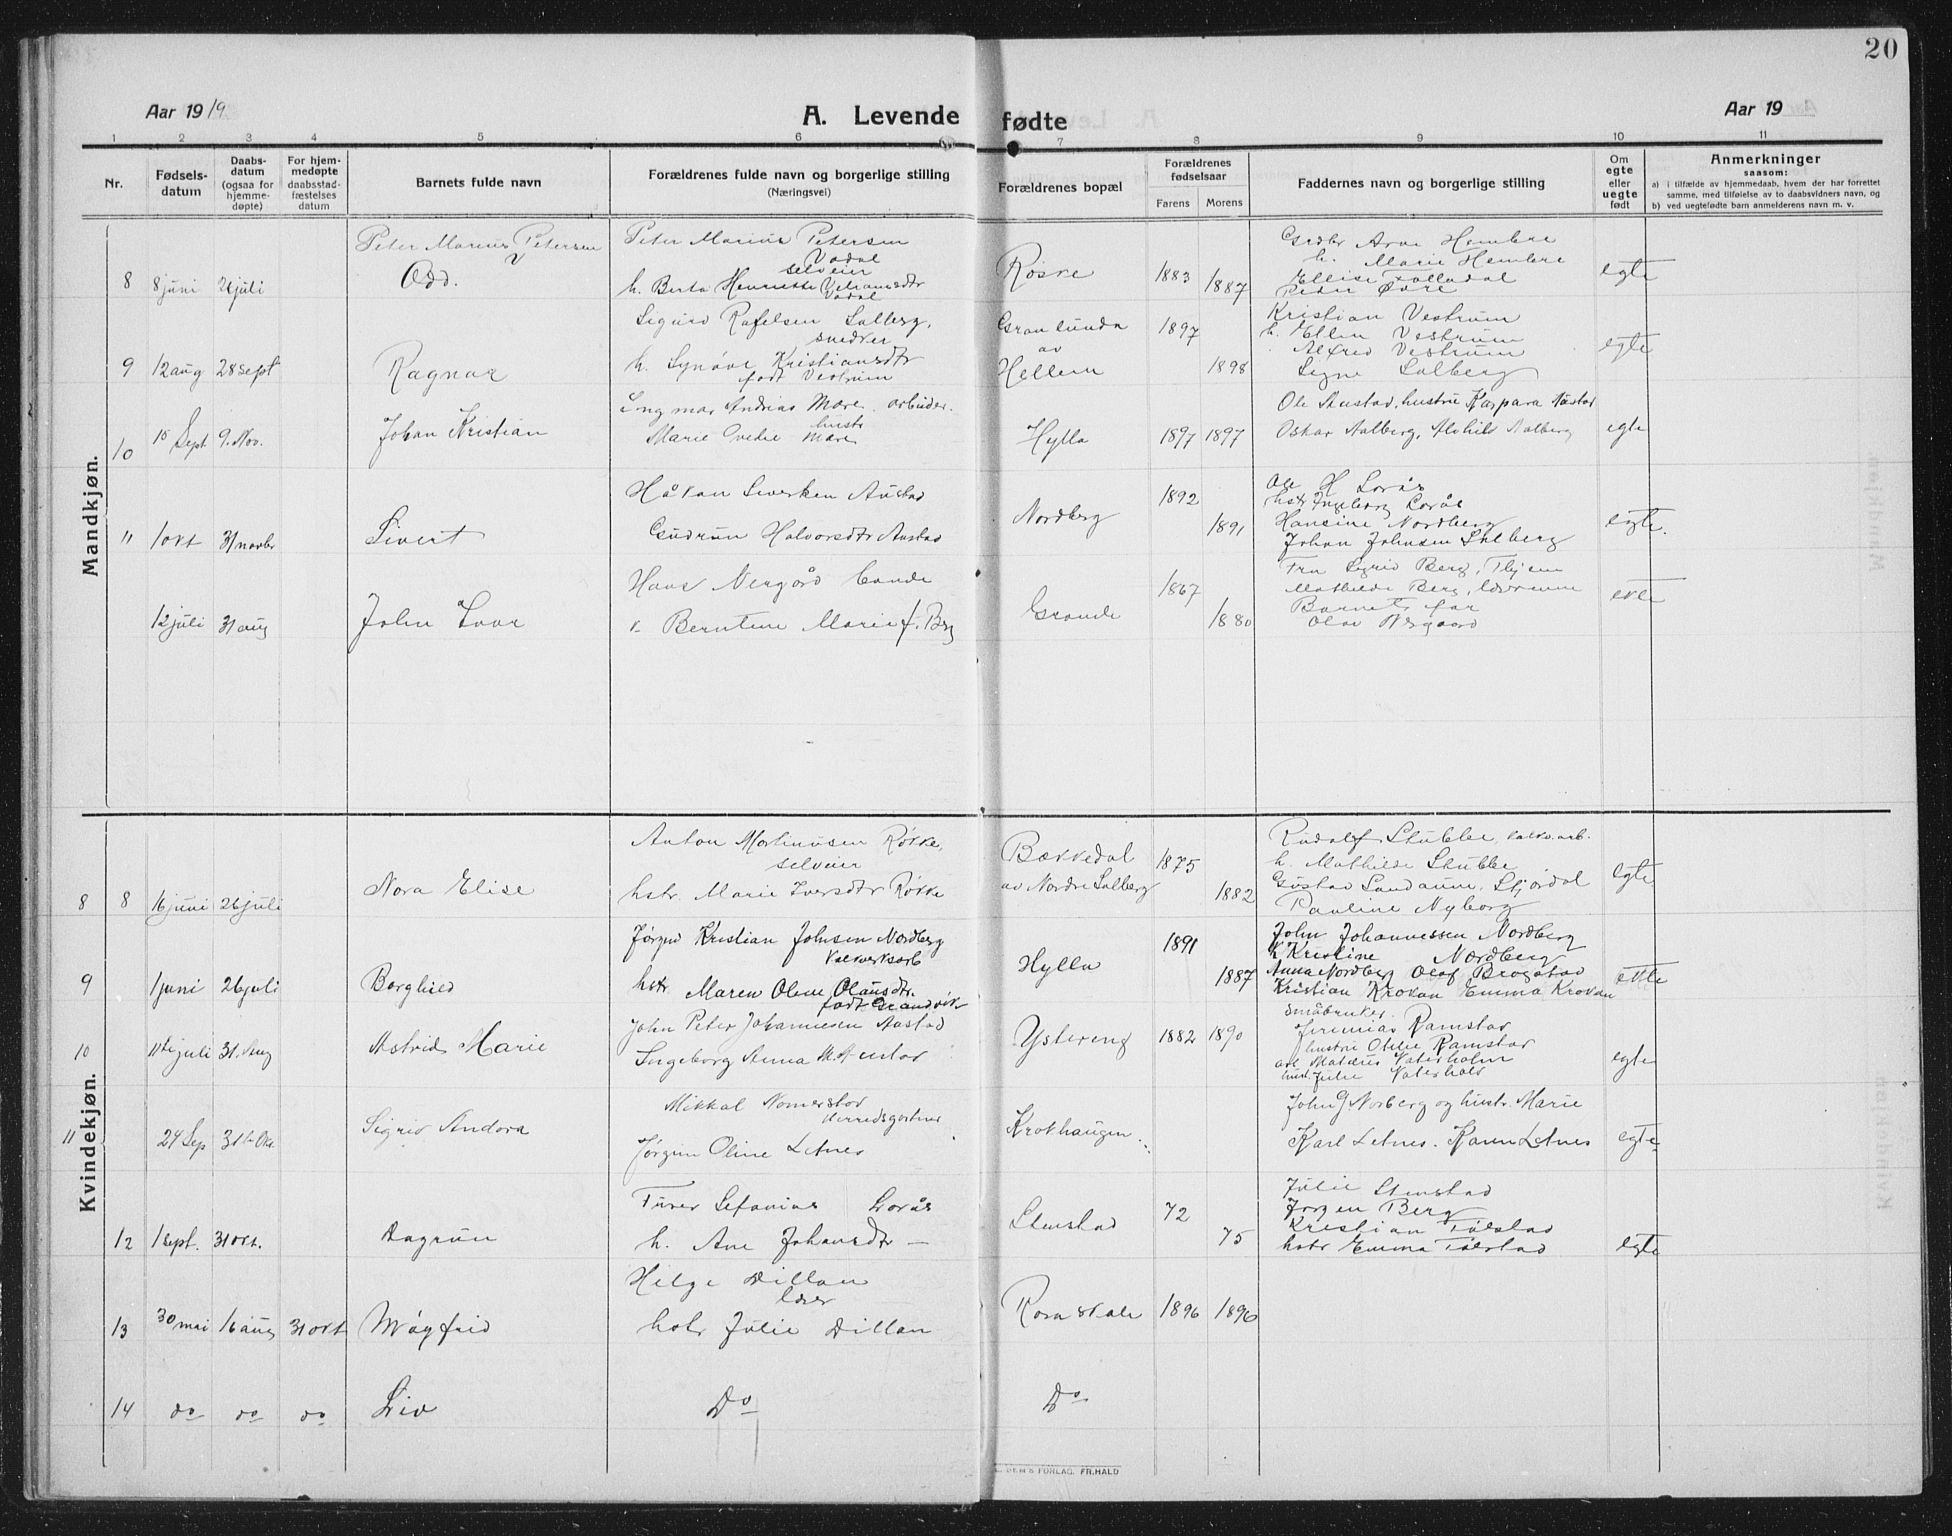 20
Aar 1919
A. Levende fødte
Aar 19
1 2 3 4 5 6 7 8 9 10 11
Nr.
Fødsels-
datum
Daabs-
datum
(ogsaa for
hjemme-
døpte)
For hjem-
medøpte
daabsstad-
fæstelses
datum
Barnets fulde navn
Forældrenes fulde navn og borgerlige stilling
(Næringsvei)
Forældrenes bopæl
Forældrenes
fødselsaar
Farens Morens
Faddernes navn og borgerlige stilling
Om
egte
eller
uegte
født
Anmerkninger
saasom:
a) i tilfælde av hjemmedaab, hvem der har forrettet
samme, med tilføielse av to daabsvidners navn, og
b) ved uegtefødte barn anmelderens navn m. v.
Mandkjøn.
Peter Marius Petersen
Odd.
8 8 juni juli
Peter Marius Petersen
Vadal
selveier
h. Berta Henriette
Vadal
Røske 1883 1887
Arne Hembre
h. Marie Hembre
Ellise
Peter Øvre
egte
9 12 aug 28 sept Ragnar
Sigurd Rafelsen Salberg,
snedker
h. Synøve Kristiansdtr
født Vestrum
Granlunda
av
Hellem
1897 1898
Kristian Vestrum
h. Ellen Vestrum
Alfred Vestrum
Signe Salberg
egte
10 15 Sept 9. Nov. Johan Kristian
Ingmar Andrias Mære. arbeider.
hustr
Marie Mære
Hylla 1897 1897
Ole Stustad, hustru Kaspara
Oskar Aalberg, Alvhild Aalberg
egte
11 1 okt 31 novbr Sivert
Håkon Siversen Austad
Gudrun Halvorsdtr Austad
Nordberg 1892 1891
Ole H Lorås
hstr Ingeborg Lorås
Hansine Nordberg
Johan Johnsen Salberg
egte.
12 juli 31 aug John Ivar
Hans Nergård bonde
k. Berntine Marie f. Berg
Grande 1867 1880
Fru Sigrid Berg,
Mathilde Berg, lærerinne
Barnets far
Olav Nergaard
ekte
Kvindekjøn.
8 8 16 juni 26 juli Nora Elise
Anton Martinusen Røkke,
selveier
hstr. Marie Iversdtr Røkke
Bækkedal
av Nordre Salberg
1875 1882
Rudolf Stubbe, kalkv.arb.
h. Mathilde Stubbe
Gustav Sandaune, Stjørdal
Pauline Nyborg
egte
9 1 juni 26 juli Borghild
Jørgen Kristian Johnsen Nordberg
Kalkverksarb
hstr. Maren Oline Olausdtr.
født Grandvik
Hylla 1891 1887
John Johannessen Nordberg
h Kristine Nordberg
Anna Nordberg Olaf Brogstad
Kristian Krokan Emma Krokan
ekte
10 11te juli 31. Aug Astrid Marie
John Peter Johannesen Austad
Ingeborg Anna
Ystereng 1882 1890
småbruker.
Jeremias Ramstad
hustru Otelie Ramstad
arb Mateus Vaterholm
hust. Julie
egte
11 24 Sep 31te Okt. Sigrid Andora
Mikkal
Herredsgartner
Jørgine Oline Letnes
Krokhaugen
John J Norberg og hustr. Marie
Karl Letnes. Karen Letnes
egte
12 1 sept. 31 okt. Dagrun
Sefanias Lorås
h. Ane Johansdtr —
Stenstad 72 75
Julie Stenstad
Jørgen Berg
Kristian Følstad
hstr Emma Følstad
egte
13 30 mai 16 aug 31 okt Møyfrid
Helge Dillan
lærer
hstr Julie Dillan
Rora skole 1896 1896
14 do do do Liv
Do
Do
FORLAG. FR. HALD